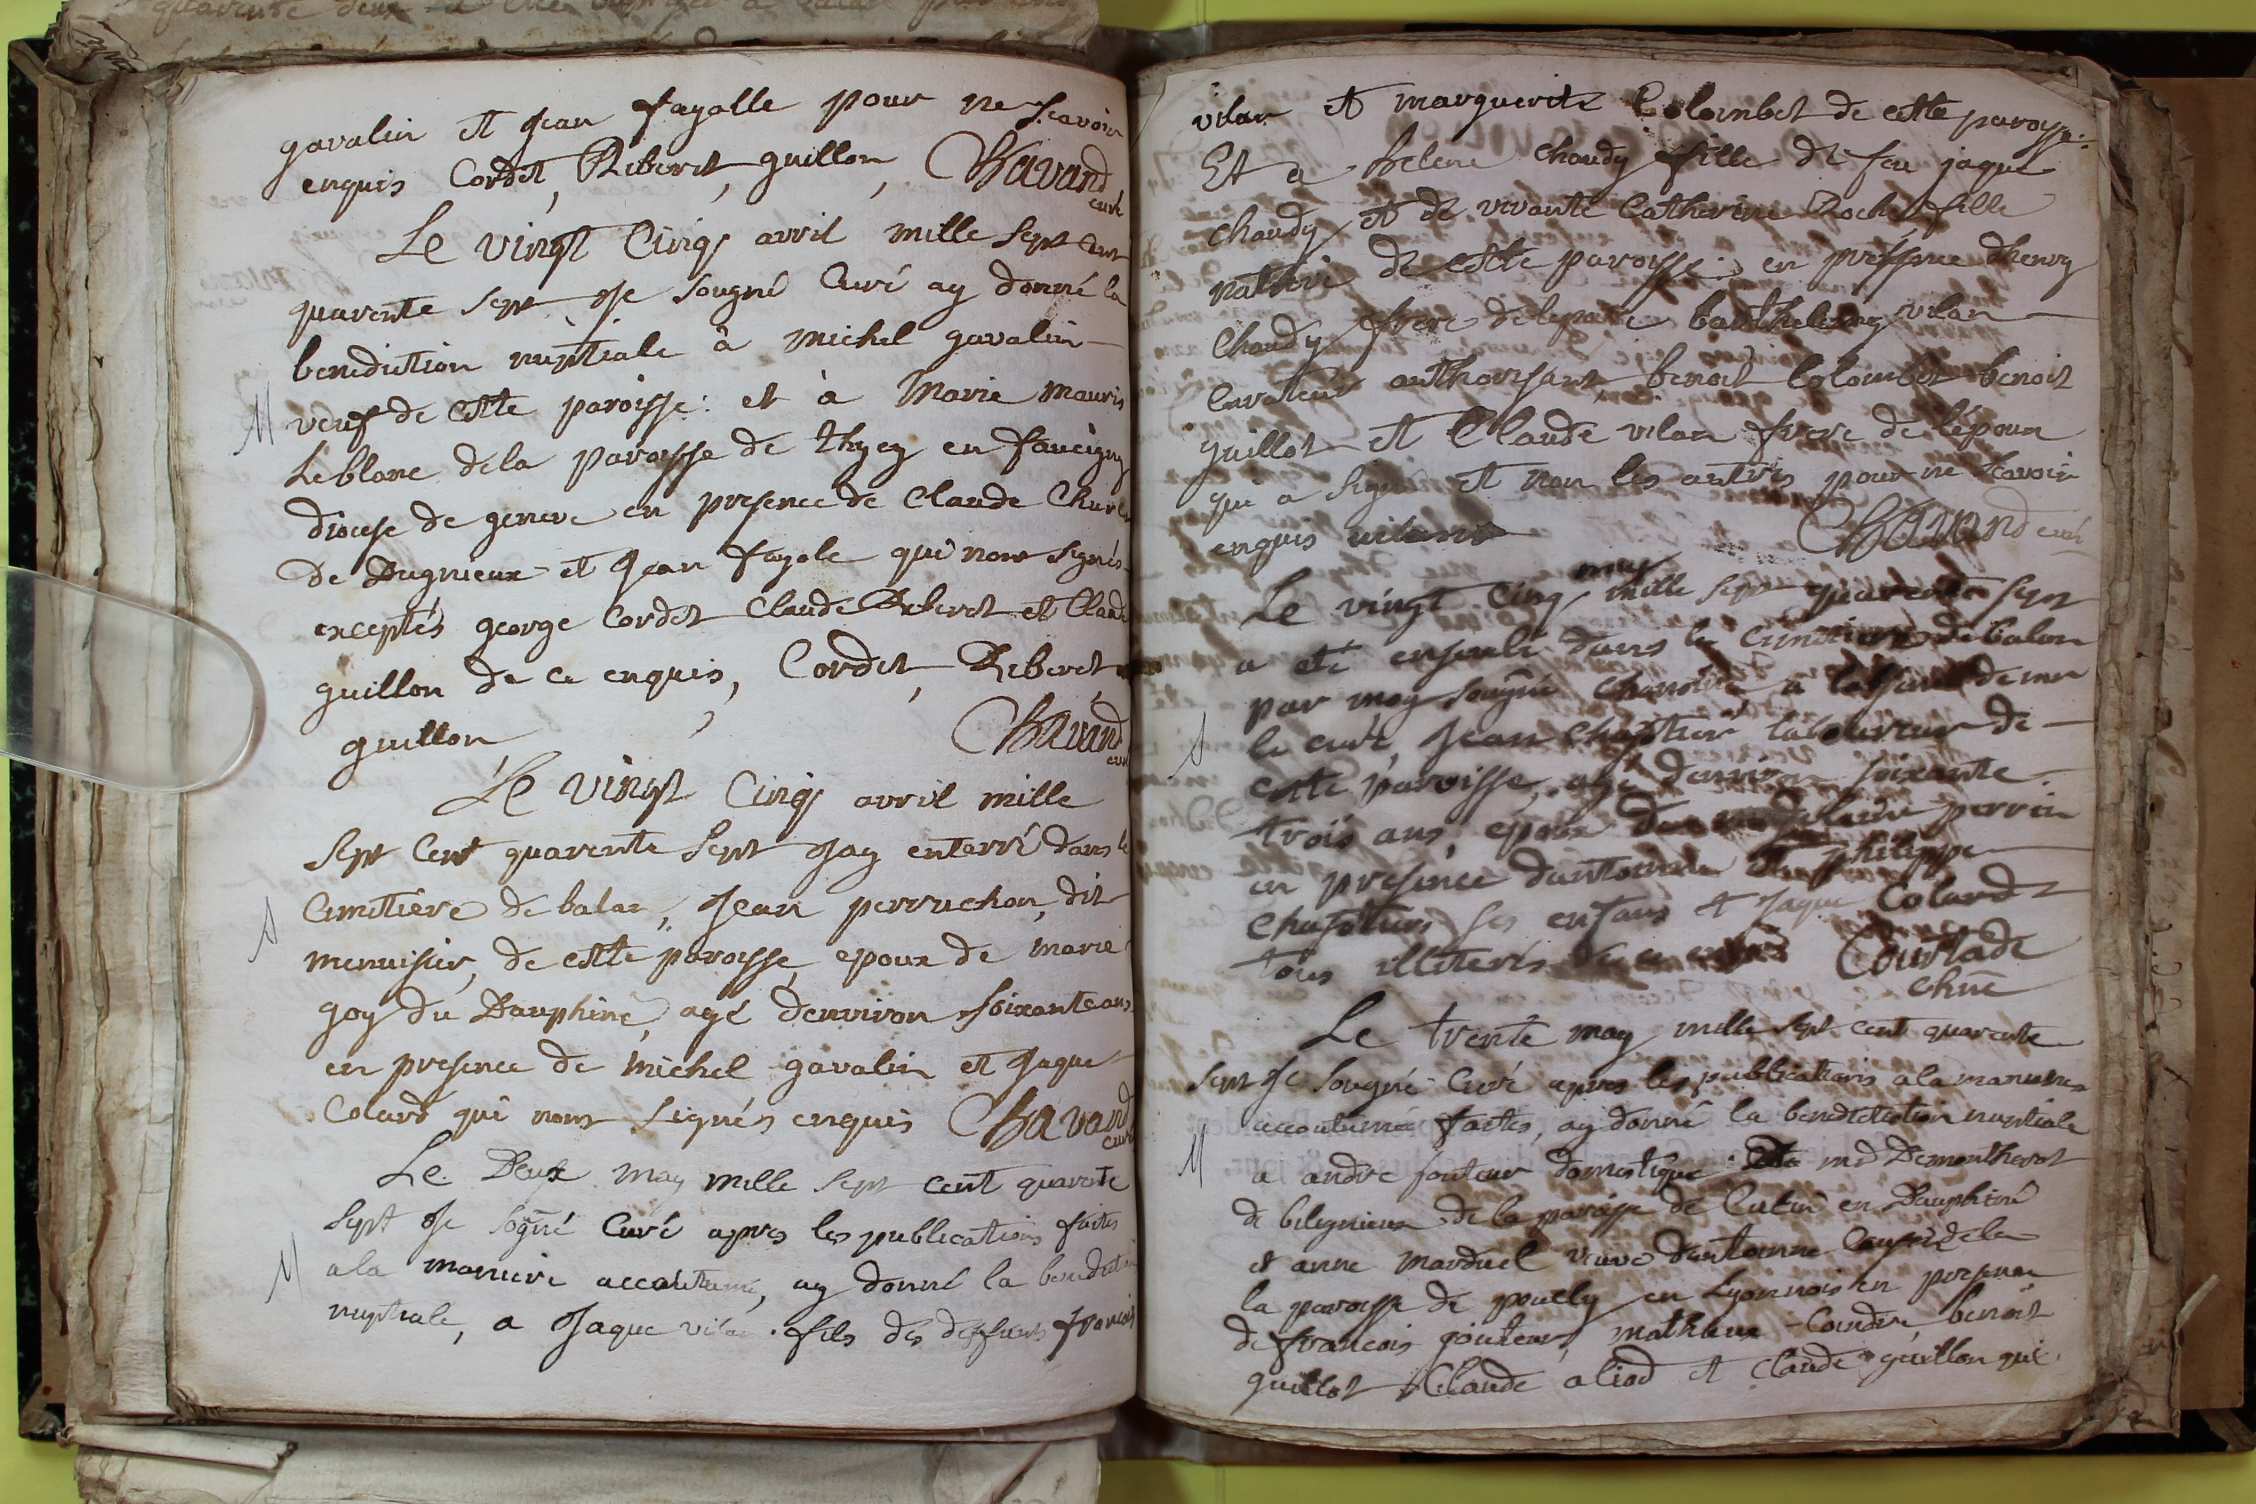 gavalin et Jean fayolle pour ne scavoir
enquis Cordet, Reberet, guillon, Chavand
curé
Le vingt Cinq avril mille sept cent
quarente sept Je sougné Curé ay donné la
benediction nuptiale à michel gavalin
M veuf de cette paroisse: et à Marie mauris
Leblanc dela paroisse de thyey en faucigny
diocese de geneve en presence de Claude Churl
de Dugnieux et Jean fayole qui nont signés
exceptés george Cordet Claude Reberet et Claude
guillon de ce enquis, Cordet, Reberet
guillon Chavand
curé
Le vingt Cinq avril mille
sept Cent quarente sept Jay enterré dans le
Cimetiere de balan, Jean perruchon, dit
menuisier, de cette paroisse, epoux de marie
goy du Dauphiné, agé denviron soixante ans
en presence de michel gavalin et Jaque
Colard qui nont signés enquis Chavand
curé
Le Deux may mille sept cent quarente
sept Je sogné Curé apres les publications faites
M a la maniere accoutumé, ay donné la benediction
nuptiale, a Jaque vilan fils des deffunts francois
vilan et marguerite Colombet de cette paroisse:
Et a helene chaudy fille de feu jaque
chaudy et de vivante Catherine Roche fille
native de cette paroisse: en presence dhenry
Chaudy frere de lepouse barthelemy vilan
Curateur authorisant, benoit Colombet benoit
guillot et Claude vilan frere de lépoux
qui a signé et non les autres pour ne scavoir
enquis vilan Chavand curé
may
Le vingt Cinq mille sept quarente sept
a eté enseveli dans le Cimetiere de balan
par moy sougné Chanoine a labsence de mr
le curé, Jean Chapotier laboureur de
cette paroisse, agé denviron soixante
trois ans, epoux de claudine perrin
en presence dantoine et philippe
Chapotiers ses enfans et Jaque Colard
tous illiterés de ce enquis Courtade
chne
Le trente may mille sept cent quarente
sept Je sougné Curé apres les publications a la maniere
accoutumée faites, ay donné la benediction nuptiale
M a andre jouteur domestique de mr Demontherot
de belignieux de la paroisse de Cutin en Dauphiné
et anne marduel veuve dantoine dela
la paroisse de pouely en Lyonnois en presence
de francois jouteur, mathieux Coindre, benoit
guillot Claude aliod et Claude guillon qui